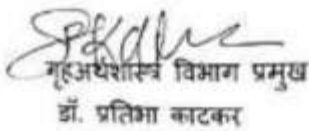 गृहअर्थशास्त्र विभाग प्रमुख
डॉ. प्रतिभा काटकर